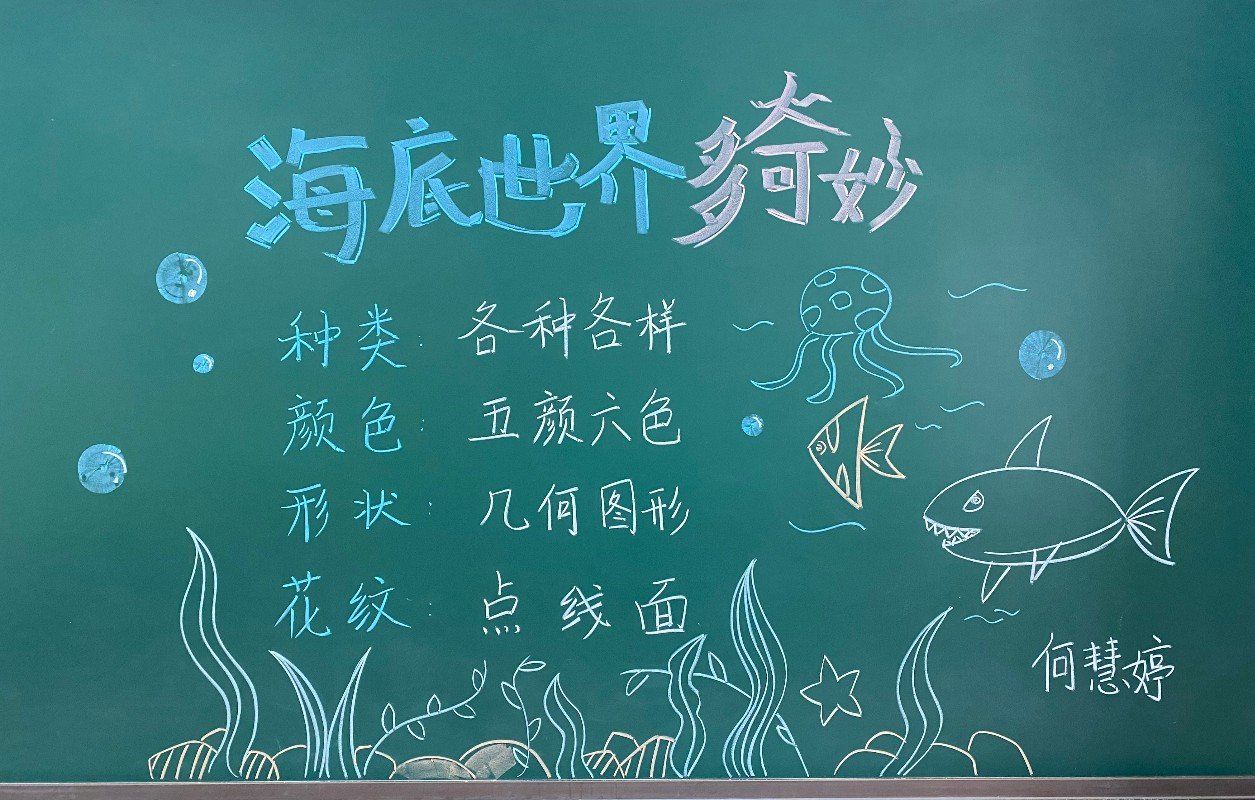 海底世界多奇妙
种类：各种各样
颜色：五颜六色
形状：几何图形
花纹：点线面
何慧婷